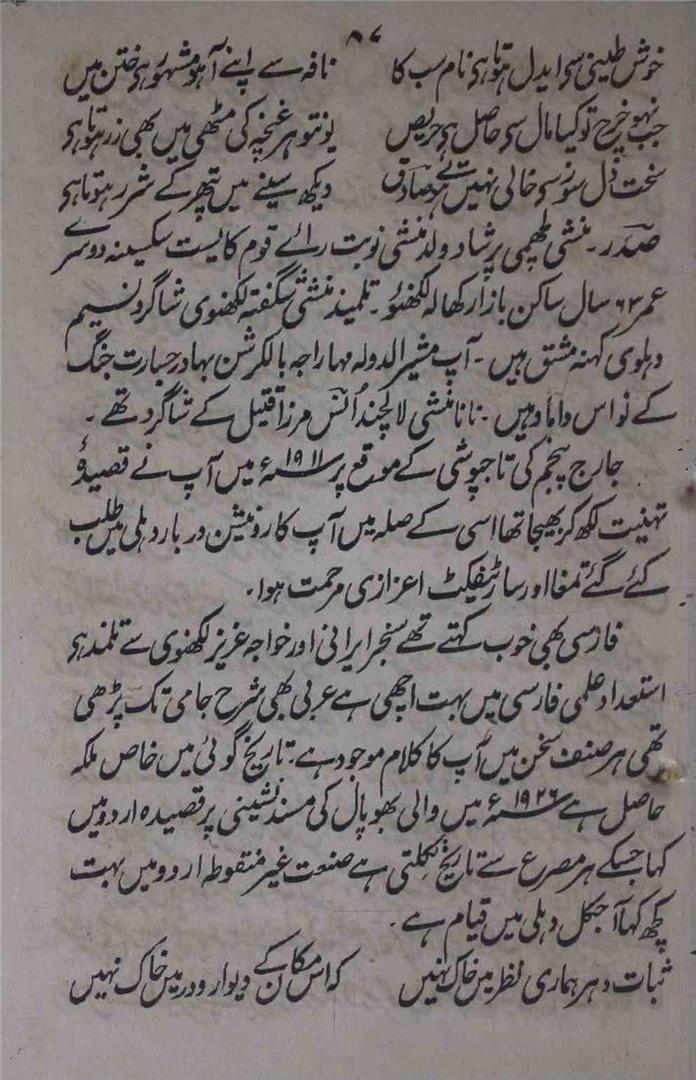 ۸۷
خوش طینتی سی ایدل ہوتا ہی نام سب کا نافہ سے اپنے آہو مشہور ہی ختن میں
جب نہو خرچ تو کیا مال سی حاصل ہی حریص یونتو ہر غنچہ کی مٹھی میں بھی زر ہوتا ہی
سخت دل سوز سی خالی نہیں ہے صادق دیکھ سینے میں پتھر کے شرر ہوتا ہی
صدر۔ منشی لچھمی پرشاد ولد منشی نوبت رائے قوم کایست سکسینہ دوسرے
عمر ۶۳ سال ساکن بازار کھالہ لکھنؤ۔ تلمیذ منشی شگفتہ لکھنوی شاگرد نسیم
دہلوی کہنہ مشق ہیں۔ آپ مشیر الدولہ مہاراجہ بالکرشن بہادر جسارت جنگ
کے نواس داماد ہیں۔ نانا منشی لالچند اُنس مرزا قتیل کے شاگرد تھے۔
جارج پنجم کی تاجپوشی کے موقع پر ۱۹۱۱ء میں آپ نے قصیدۂ
تہنیت لکھ کر بھیجا تھا اسی کے صلہ میں آپ کارونیشن دربار دہلی میں طلب
کئے گئے تمغا اور سارٹیفکٹ اعزازی مرحمت ہوا۔
فارسی بھی خوب کہتے تھے سنجر ایرانی اور خواجہ عزیز لکھنوی سے تلمذ ہی
استعداد علمی فارسی میں بہت اچھی ہے عربی بھی شرح جامی تک پڑھی
تھی ہر صنف سخن میں آپ کا کلام موجود ہے۔ تاریخ گوئی میں خاص ملکہ
حاصل ہے ۱۹۲۶ء میں والی بھوپال کی مسند نشینی پر قصیدہ اردو میں
کہا جسکے ہر مصرع سے تاریخ نکلتی ہے صنعت غیر منقوطہ اردو میں بہت
کچھ کہا آجکل دہلی میں قیام ہے۔
ثبات دہر ہماری نظر میں خاک نہیں کہ اس مکان کے دیوار و در میں خاک نہیں